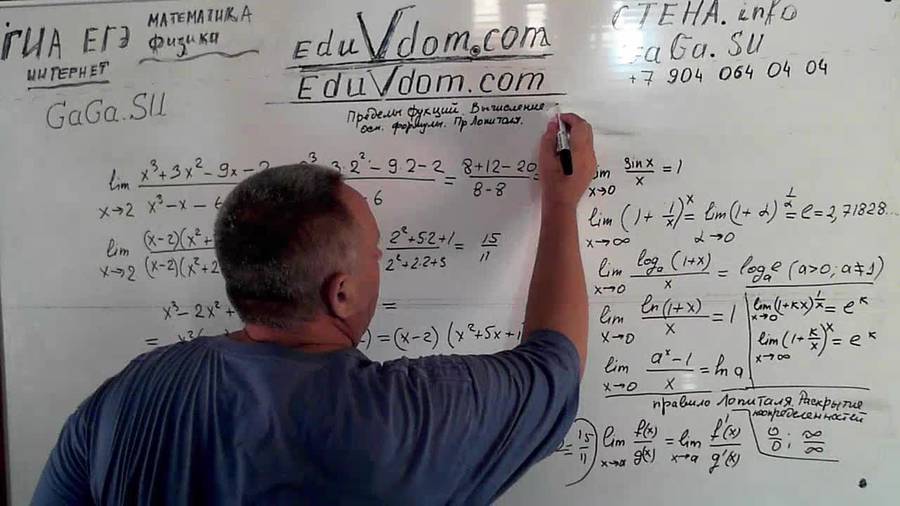 ГИА ЕГЭ
МАТЕМАТИКА
физики
ИНТЕРНЕТ
GaGa.SU
EduVdom.com
EduVdom.com
Пределы фукций. Вычисление
осн. формулы. Пр Лопиталя.
СТЕНА.info
GaGa.SU
+7 904 064 04 04
lim x→2 x³+3x²-9x-2 / x³-x-6
2³ 3·2²-9·2-2 / 6 = 8+12-20 / 8-8 =
lim x→2 (x-2)(x²+ / (x-2)(x²+2
2²+5·2+1 / 2²+2·2+3 = 15/11
x³-2x²+ =
= x²( ) = (x-2) (x²+5x+1
lim x→0 sinx/x = 1
lim x→∞ (1+1/x)^x = lim α→0 (1+α)^(1/α) = e = 2,71828...
lim x→0 log_a(1+x)/x = log_a e (a>0; a≠1)
lim x→0 ln(1+x)/x = 1
lim x→0 (1+kx)^(1/x) = e^k
lim x→∞ (1+k/x)^x = e^k
lim x→0 a^x-1/x = ln a
правило Лопиталя. Раскрытие
неопределенностей
= 15/11
lim x→a f(x)/g(x) = lim x→a f'(x)/g'(x)
0/0 ; ∞/∞